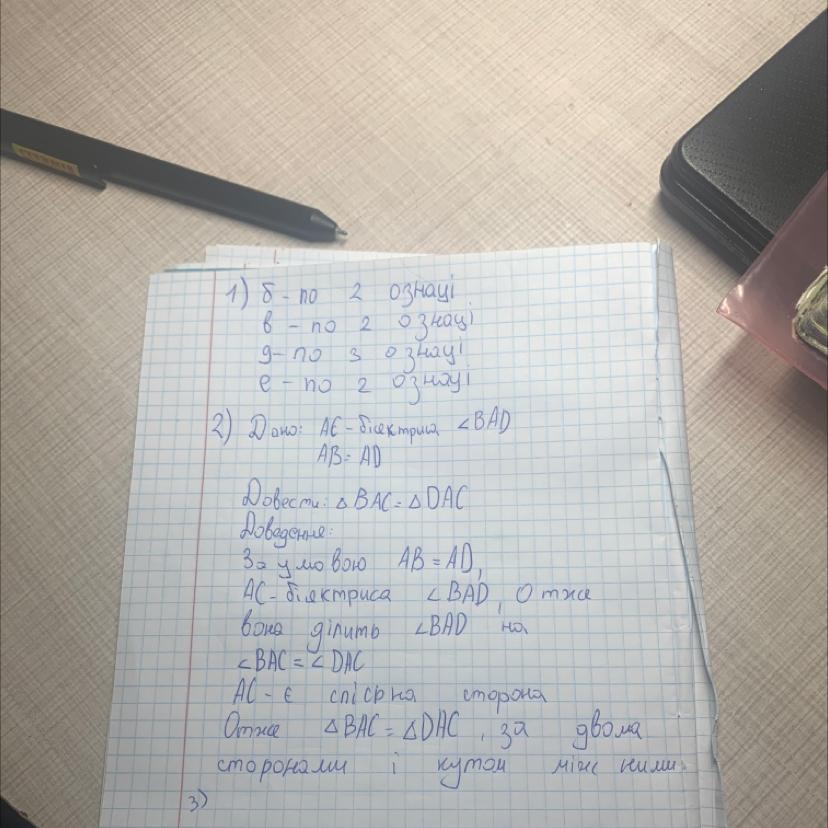 1) б - по 2 ознаці
в - по 2 ознаці
д - по 3 ознаці
е - по 2 ознаці
2) Дано: АС - бісектриса ∠BAD
AB = AD
Довести: △BAC = △DAC
Доведення:
За умовою AB = AD,
АС - бісектриса ∠BAD, Отже
вона ділить ∠BAD на
∠BAC = ∠DAC
АС - є спільна сторона
Отже △BAC = △DAC, за двома
сторонами і кутом між ними.
3)